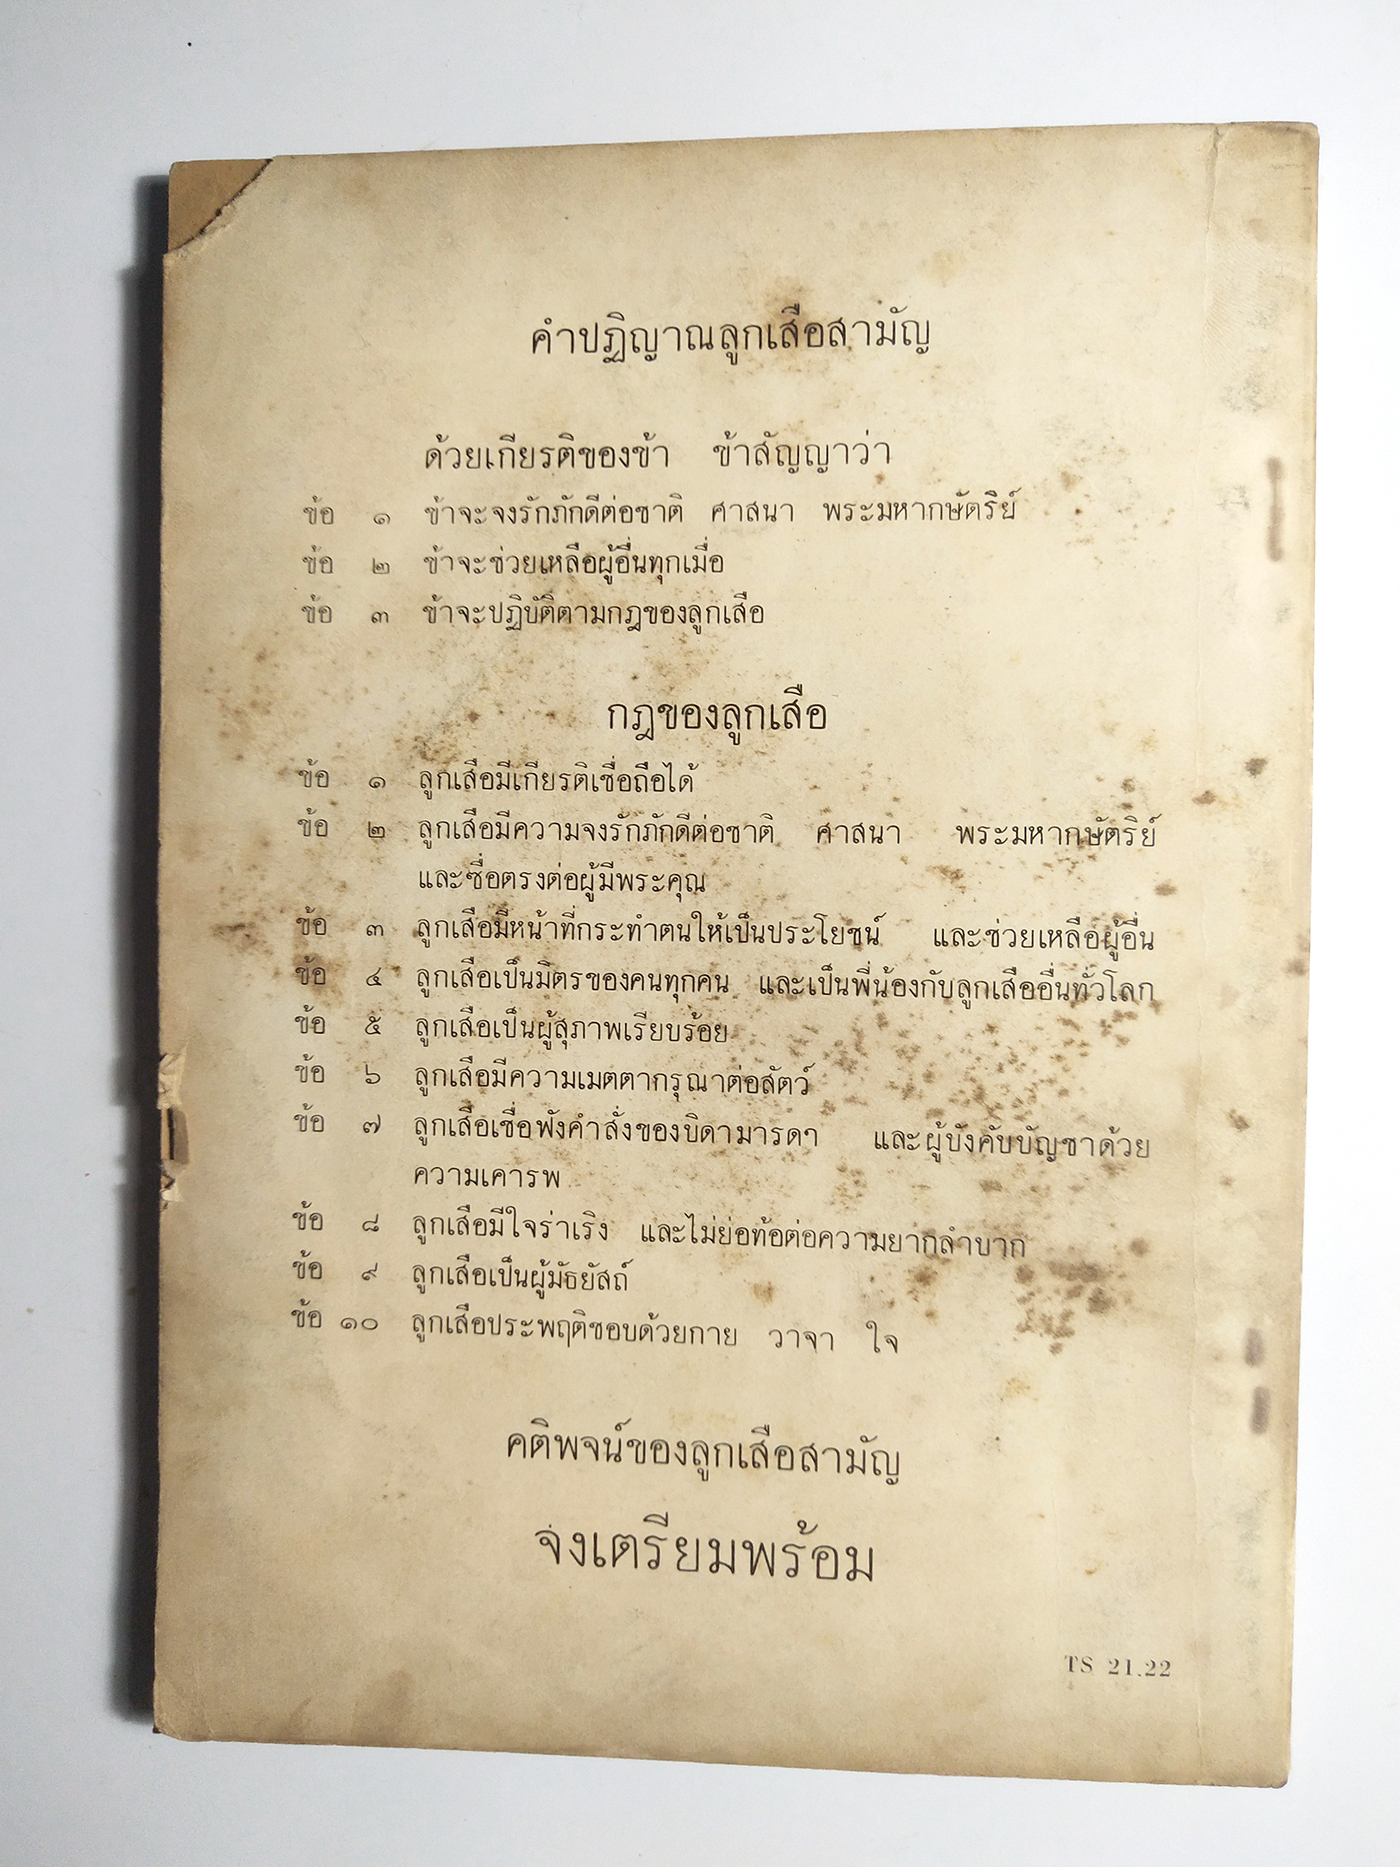 คำปฏิญาณลูกเสือสามัญ
ด้วยเกียรติของข้า ข้าสัญญาว่า
ข้อ ๑ ข้าจะจงรักภักดีต่อชาติ ศาสนา พระมหากษัตริย์
ข้อ ๒ ข้าจะช่วยเหลือผู้อื่นทุกเมื่อ
ข้อ ๓ ข้าจะปฏิบัติตามกฎของลูกเสือ
กฎของลูกเสือ
ข้อ ๑ ลูกเสือมีเกียรติเชื่อถือได้
ข้อ ๒ ลูกเสือมีความจงรักภักดีต่อชาติ ศาสนา พระมหากษัตริย์
และซื่อตรงต่อผู้มีพระคุณ
ข้อ ๓ ลูกเสือมีหน้าที่กระทำตนให้เป็นประโยชน์ และช่วยเหลือผู้อื่น
ข้อ ๔ ลูกเสือเป็นมิตรของคนทุกคน และเป็นพี่น้องกับลูกเสืออื่นทั่วโลก
ข้อ ๕ ลูกเสือเป็นผู้สุภาพเรียบร้อย
ข้อ ๖ ลูกเสือมีความเมตตากรุณาต่อสัตว์
ข้อ ๗ ลูกเสือเชื่อฟังคำสั่งของบิดามารดา และผู้บังคับบัญชาด้วย
ความเคารพ
ข้อ ๘ ลูกเสือมีใจร่าเริง และไม่ย่อท้อต่อความยากลำบาก
ข้อ ๙ ลูกเสือเป็นผู้มัธยัสถ์
ข้อ ๑๐ ลูกเสือประพฤติชอบด้วยกาย วาจา ใจ
คติพจน์ของลูกเสือสามัญ
จงเตรียมพร้อม
TS 21.22